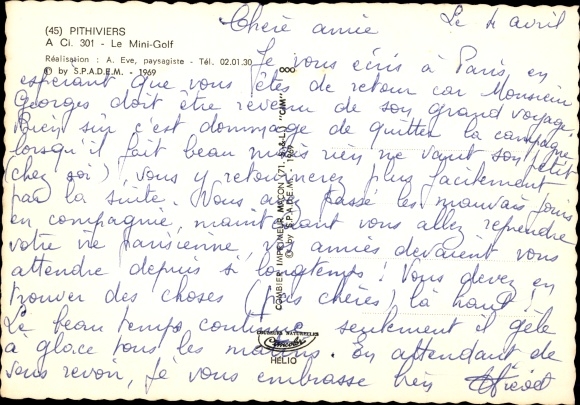 (45) PITHIVIERS
A Ci. 301 - Le Mini-Golf
Réalisation : A. Eve, paysagiste - Tél. 02.01.30
© by S.P.A.D.E.M. - 1969
Chère amie Le 4 avril
Je vous écris à Paris en
espérant que vous êtes de retour car Monsieur
Georges doit être revenu de son grand voyage.
Bien sûr c'est dommage de quitter la campagne
lorsqu'il fait beau mais rien ne vaut son petit
(chez soi) vous y retournerez plus facilement
par la suite. Vous avez passé les mauvais jours
en compagnie maintenant vous allez reprendre
votre vie parisienne, vos amies devaient vous
attendre depuis si longtemps ! Vous devez en
trouver des choses (plus chères) là haut !
Le beau temps continue seulement il gèle
à glace tous les matins. En attendant de
vous revoir, je vous embrasse bien
COMBIER IMPRIMEUR MACON (71 S.-&-L.) "CIM"
© by S.P.A.D.E.M. 1969
COULEURS NATURELLES
Cimcolor
HELIO